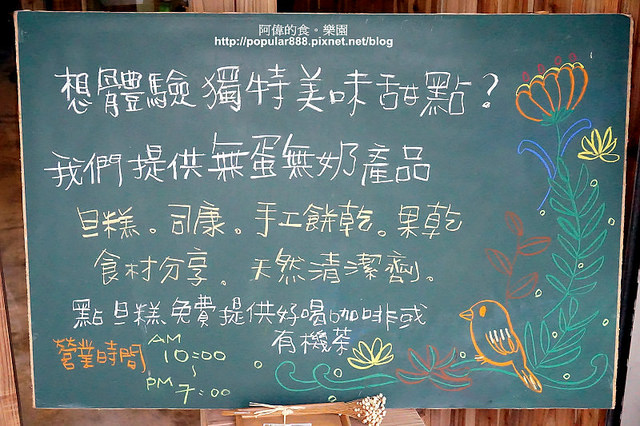 阿偉的食。樂園
http://popular888.pixnet.net/blog
想體驗獨特美味甜點?
我們提供無蛋無奶產品
旦糕。司康。手工餅乾。果乾
食材分享。天然清潔劑。
點旦糕免費提供好喝咖啡或
有機茶
營業時間 AM 10:00
~
PM 7:00